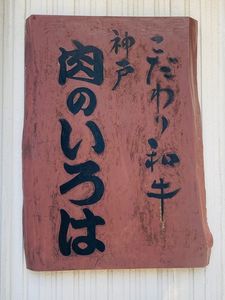 こだわり和牛
神戸
肉のいろは